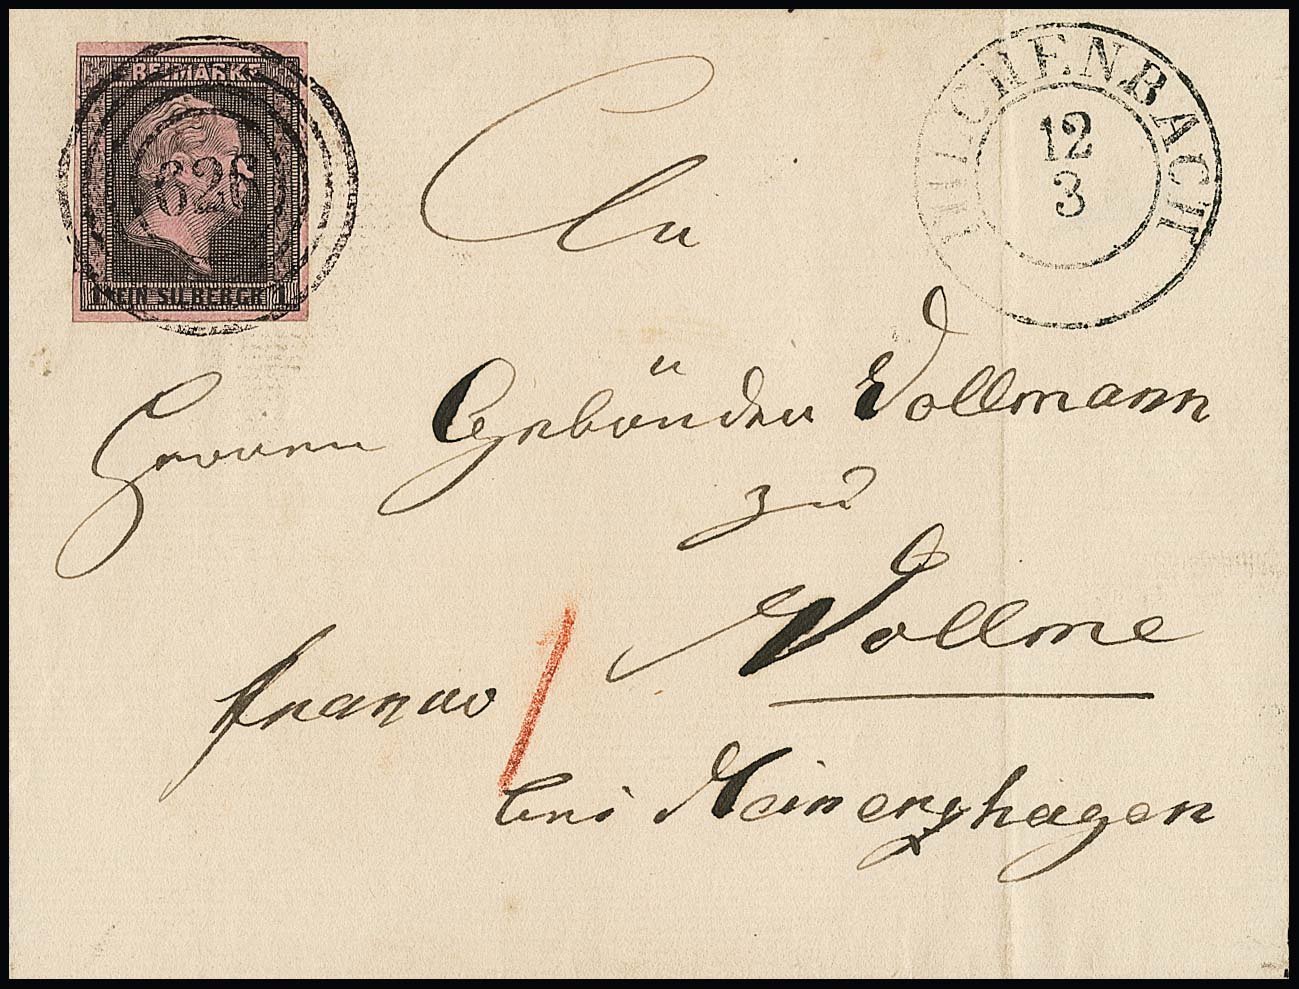 FREIMARKE
626
1 EIN SILBERGR. 1
HILCHENBACH
12
3
An
Herrn Gebrüder Vollmann
zu
Vollme
franco 1
bei Meinerzhagen